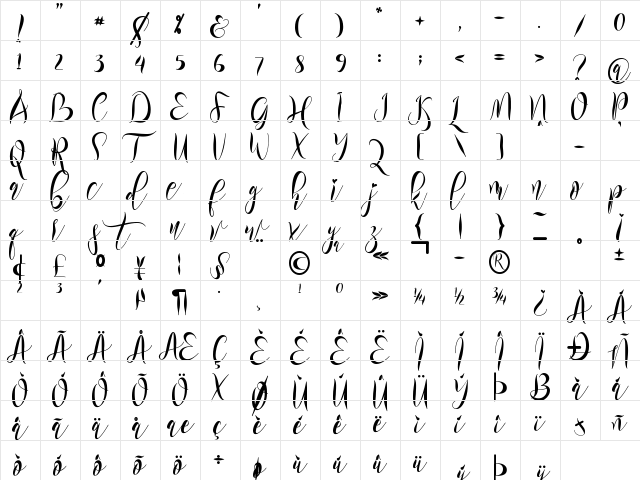 ! " # $ % & ' ( ) * + , - . / 0
1 2 3 4 5 6 7 8 9 : ; < = > ? @
A B C D E F G H I J K L M N O P
Q R S T U V W X Y Z [ \ ] -
a b c d e f g h i j k l m n o p
q r s t u v w x y z { | } ~ ¡
¢ £ ¥ ¦ § © « ® ±
² ³ ´ ¶ · ¸ ¹ º » ¼ ½ ¾ ¿ À Á
Â Ã Ä Å Æ Ç È É Ê Ë Ì Í Î Ï Ð Ñ
Ò Ó Ô Õ Ö × Ø Ù Ú Û Ü Ý Þ ß à á
â ã ä å æ ç è é ê ë ì í î ï ð ñ
ò ó ô õ ö ÷ ø ù ú û ü ý þ ÿ